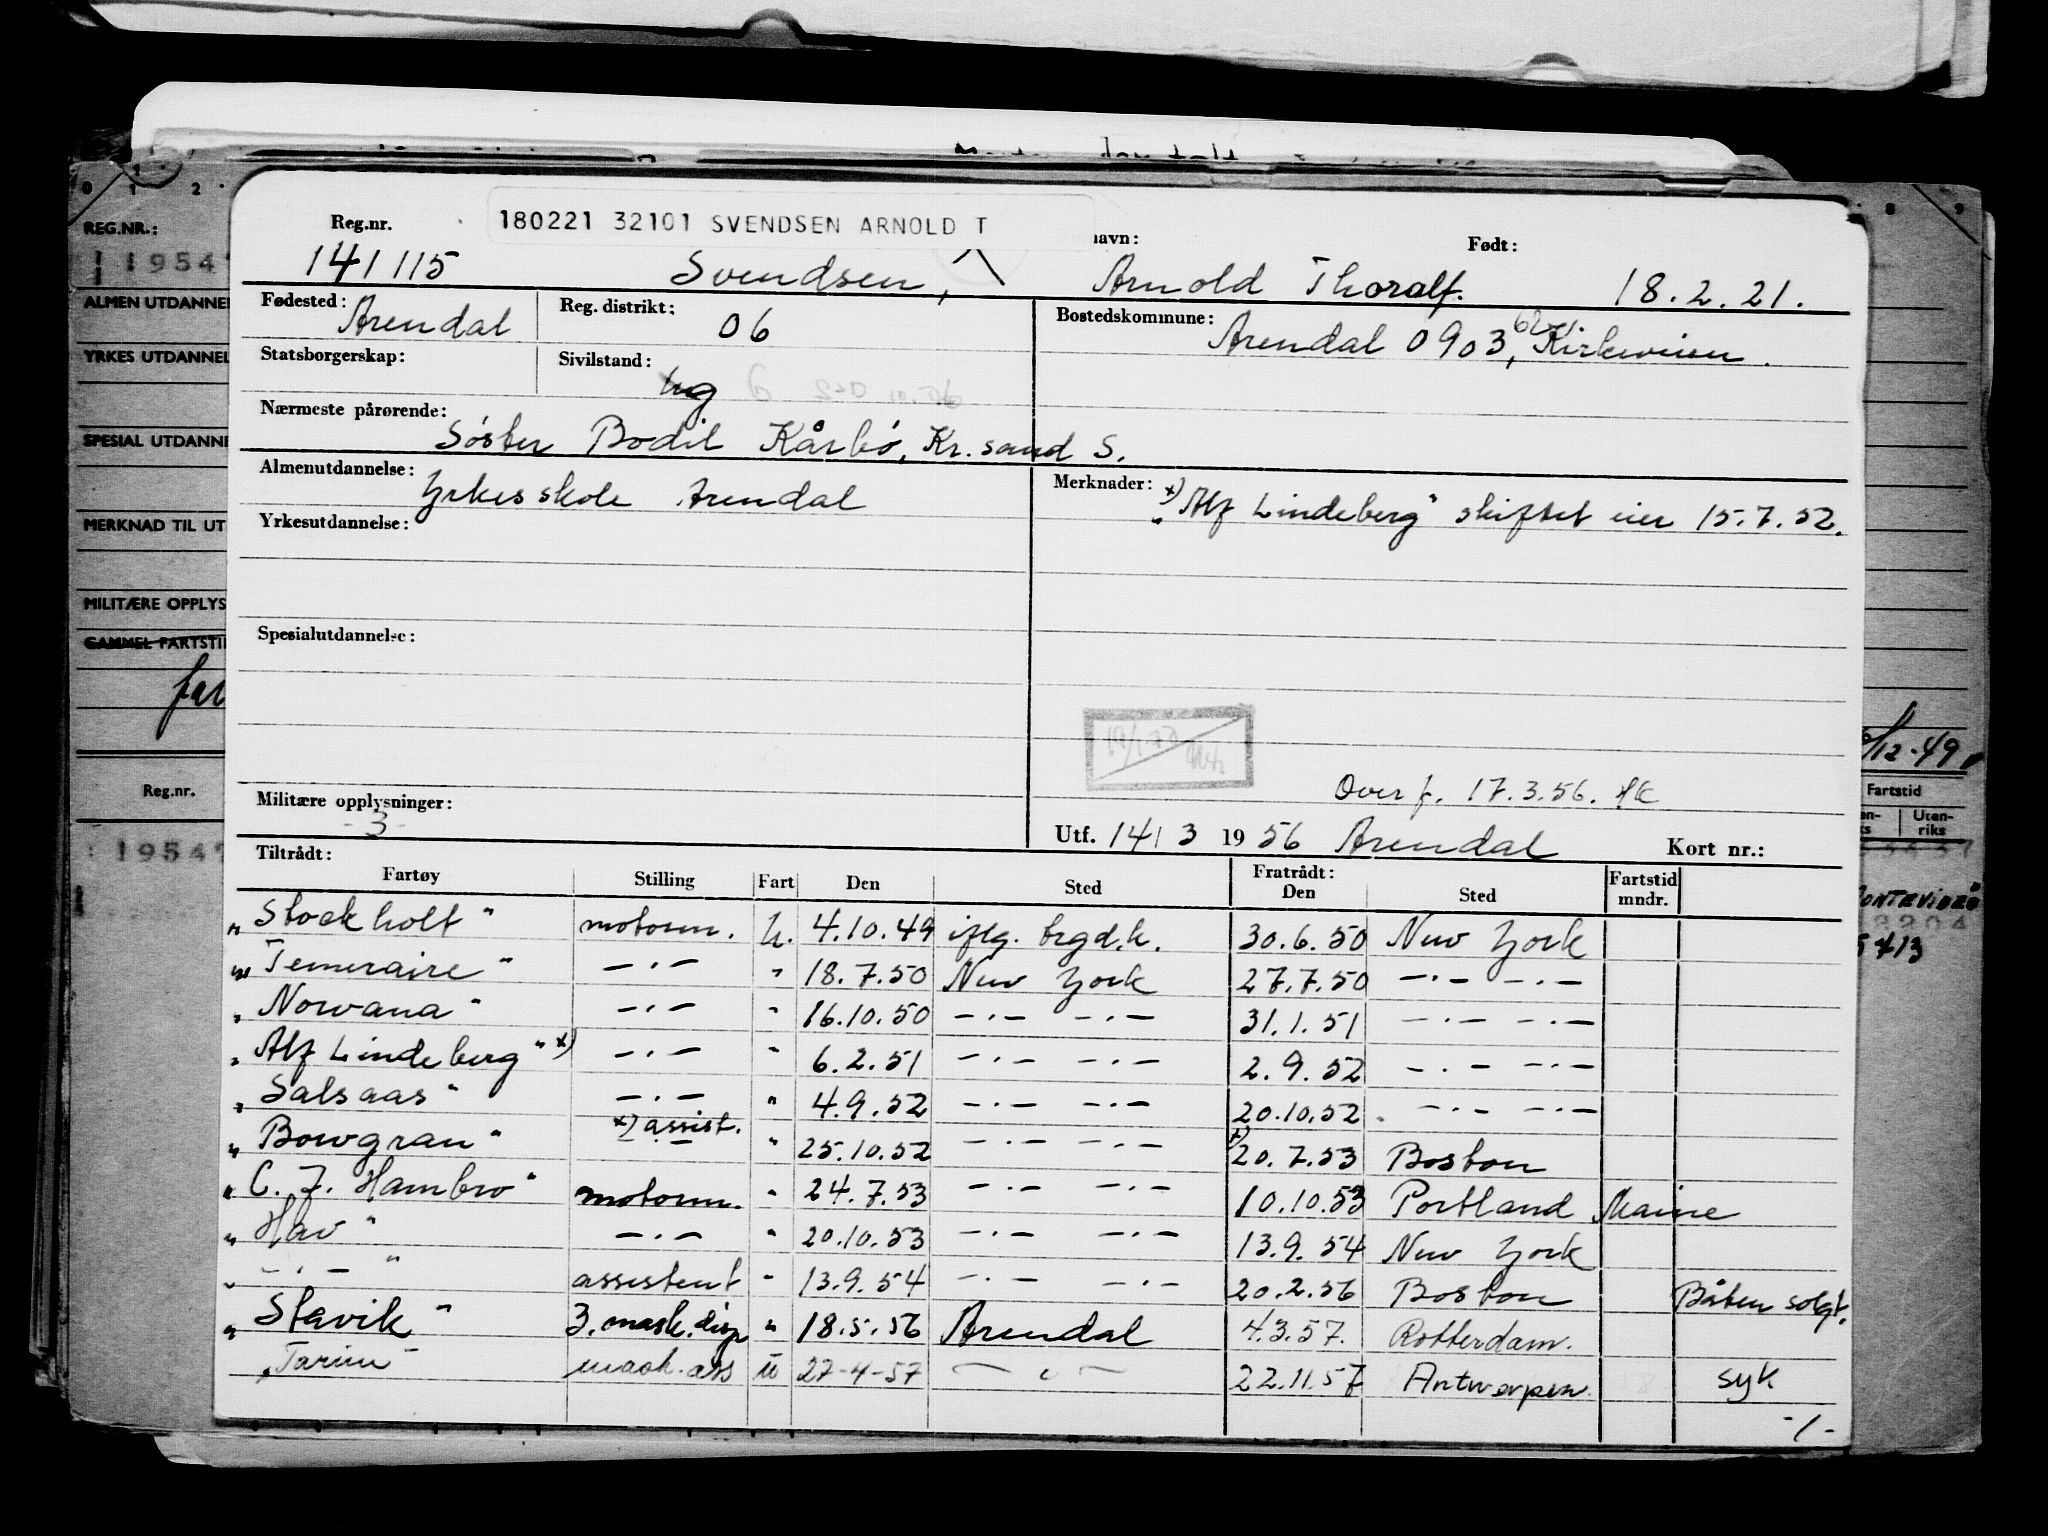 180221 32101 SVENDSEN ARNOLD T
Reg.nr. navn: Født:
141115 Svendsen, Arnold Thoralf. 18.2.21.
Fødested: Arendal Reg. distrikt: 06 Bostedskommune: Arendal 0903, Kirkeveien.
Statsborgerskap: Sivilstand: ug
Nærmeste pårørende: Søster Bodil Kårbø, Kr.sand S.
Almenutdannelse: Yrkesskole Arendal Merknader: x) "Alf Lindeberg" skiftet eier 15.7.52.
Yrkesutdannelse:
Spesialutdannelse:
Overf. 17.3.56.
Militære opplysninger: -3-
Utf. 14/3 1956 Arendal Kort nr.:
Tiltrådt: Fratrådt: Fartstid
Fartøy Stilling Fart Den Sted Den Sted mndr.
"Stockholt" motorm. u. 4.10.49 iflg. brgd.h. 30.6.50 New York
"Temeraire" —.— " 18.7.50 New York 27.7.50 —.— —.—
"Norvana" —.— " 16.10.50 —.— —.— 31.1.51 —.— —.—
"Alf Lindeberg" x) —.— " 6.2.51 —.— —.— 2.9.52 —.— —.—
"Salsaas" —.— " 4.9.52 —.— —.— 20.10.52 —.— —.—
"Bowgran" x) assist. " 25.10.52 —.— —.— x) 20.7.53 Boston
"C. J. Hambro" motorm. " 24.7.53 —.— —.— 10.10.53 Portland Maine
"Hav" —.— " 20.10.53 —.— —.— 13.9.54 New York
" —.— " assistent " 13.9.54 —.— —.— 20.2.56 Boston Båten solgt.
"Stavik" 3.mask.disp " 18.5.56 Arendal 4.3.57. Rotterdam.
"Tarim" mask.ass u 27-4-57 — " — 22.11.57 Antwerpen. syk
-1-
REG.NR.:
19547
ALMEN UTDANNEL
YRKES UTDANNEL
SPESIAL UTDANNE
MERKNAD TIL UT
MILITÆRE OPPLYS
GAMMEL FARTSTI
Reg.nr.
19547
12-49
Fartstid
Uten-
riks
MONTEVIDEO
5413